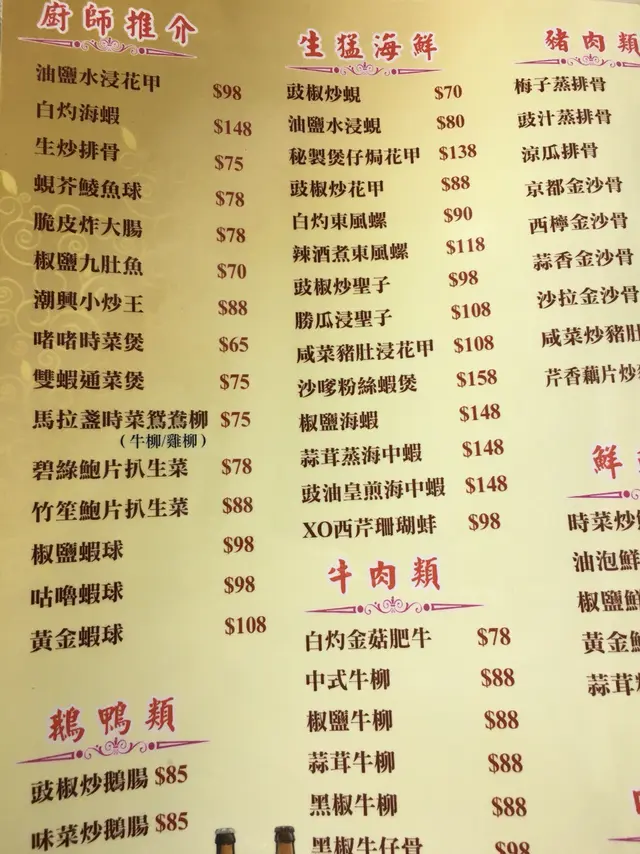 廚師推介
油鹽水浸花甲 $98
白灼海蝦 $148
生炒排骨 $75
蜆芥鯪魚球 $78
脆皮炸大腸 $78
椒鹽九肚魚 $70
潮興小炒王 $88
啫啫時菜煲 $65
雙蝦通菜煲 $75
馬拉盞時菜鴛鴦柳 $75
(牛柳/雞柳)
碧綠鮑片扒生菜 $78
竹笙鮑片扒生菜 $88
椒鹽蝦球 $98
咕嚕蝦球 $98
黃金蝦球 $108
鵝鴨類
豉椒炒鵝腸 $85
味菜炒鵝腸 $85
生猛海鮮
豉椒炒蜆 $70
油鹽水浸蜆 $80
秘製煲仔焗花甲 $138
豉椒炒花甲 $88
白灼東風螺 $90
辣酒煮東風螺 $118
豉椒炒聖子 $98
勝瓜浸聖子 $108
咸菜豬肚浸花甲 $108
沙嗲粉絲蝦煲 $158
椒鹽海蝦 $148
蒜茸蒸海中蝦 $148
豉油皇煎海中蝦 $148
XO西芹珊瑚蚌 $98
牛肉類
白灼金菇肥牛 $78
中式牛柳 $88
椒鹽牛柳 $88
蒜茸牛柳 $88
黑椒牛柳 $88
黑椒牛仔骨 $98
豬肉類
梅子蒸排骨
豉汁蒸排骨
涼瓜排骨
京都金沙骨
西檸金沙骨
蒜香金沙骨
沙拉金沙骨
咸菜炒豬肚
芹香藕片炒
鮮
時菜炒
油泡鮮
椒鹽鮮
黃金
蒜茸